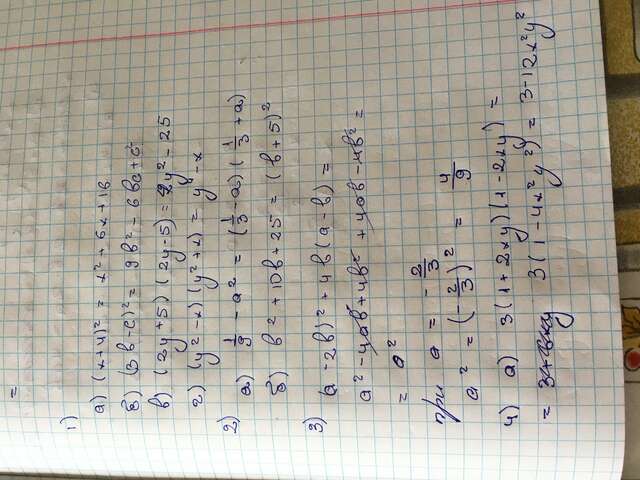 =
1)
а) (x+4)² = x² + 6x + 16
б) (3b-c)² = 9b² - 6bc + c²
в) (2y+5)(2y-5) = 2y² - 25
г) (y²-x)(y²+x) = y⁴ - x
2)
а) 1/9 - a² = (1/3 - a)(1/3 + a)
б) b² + 10b + 25 = (b+5)²
3) (a-2b)² + 4b(a-b) =
a² - 4ab + 4b² + 4ab - 4b² =
= a²
при a = -2/3
a² = (-2/3)² = 4/9
4) а) 3(1+2xy)(1-2xy) =
= 3(1-4x²y²) = 3-12x²y²